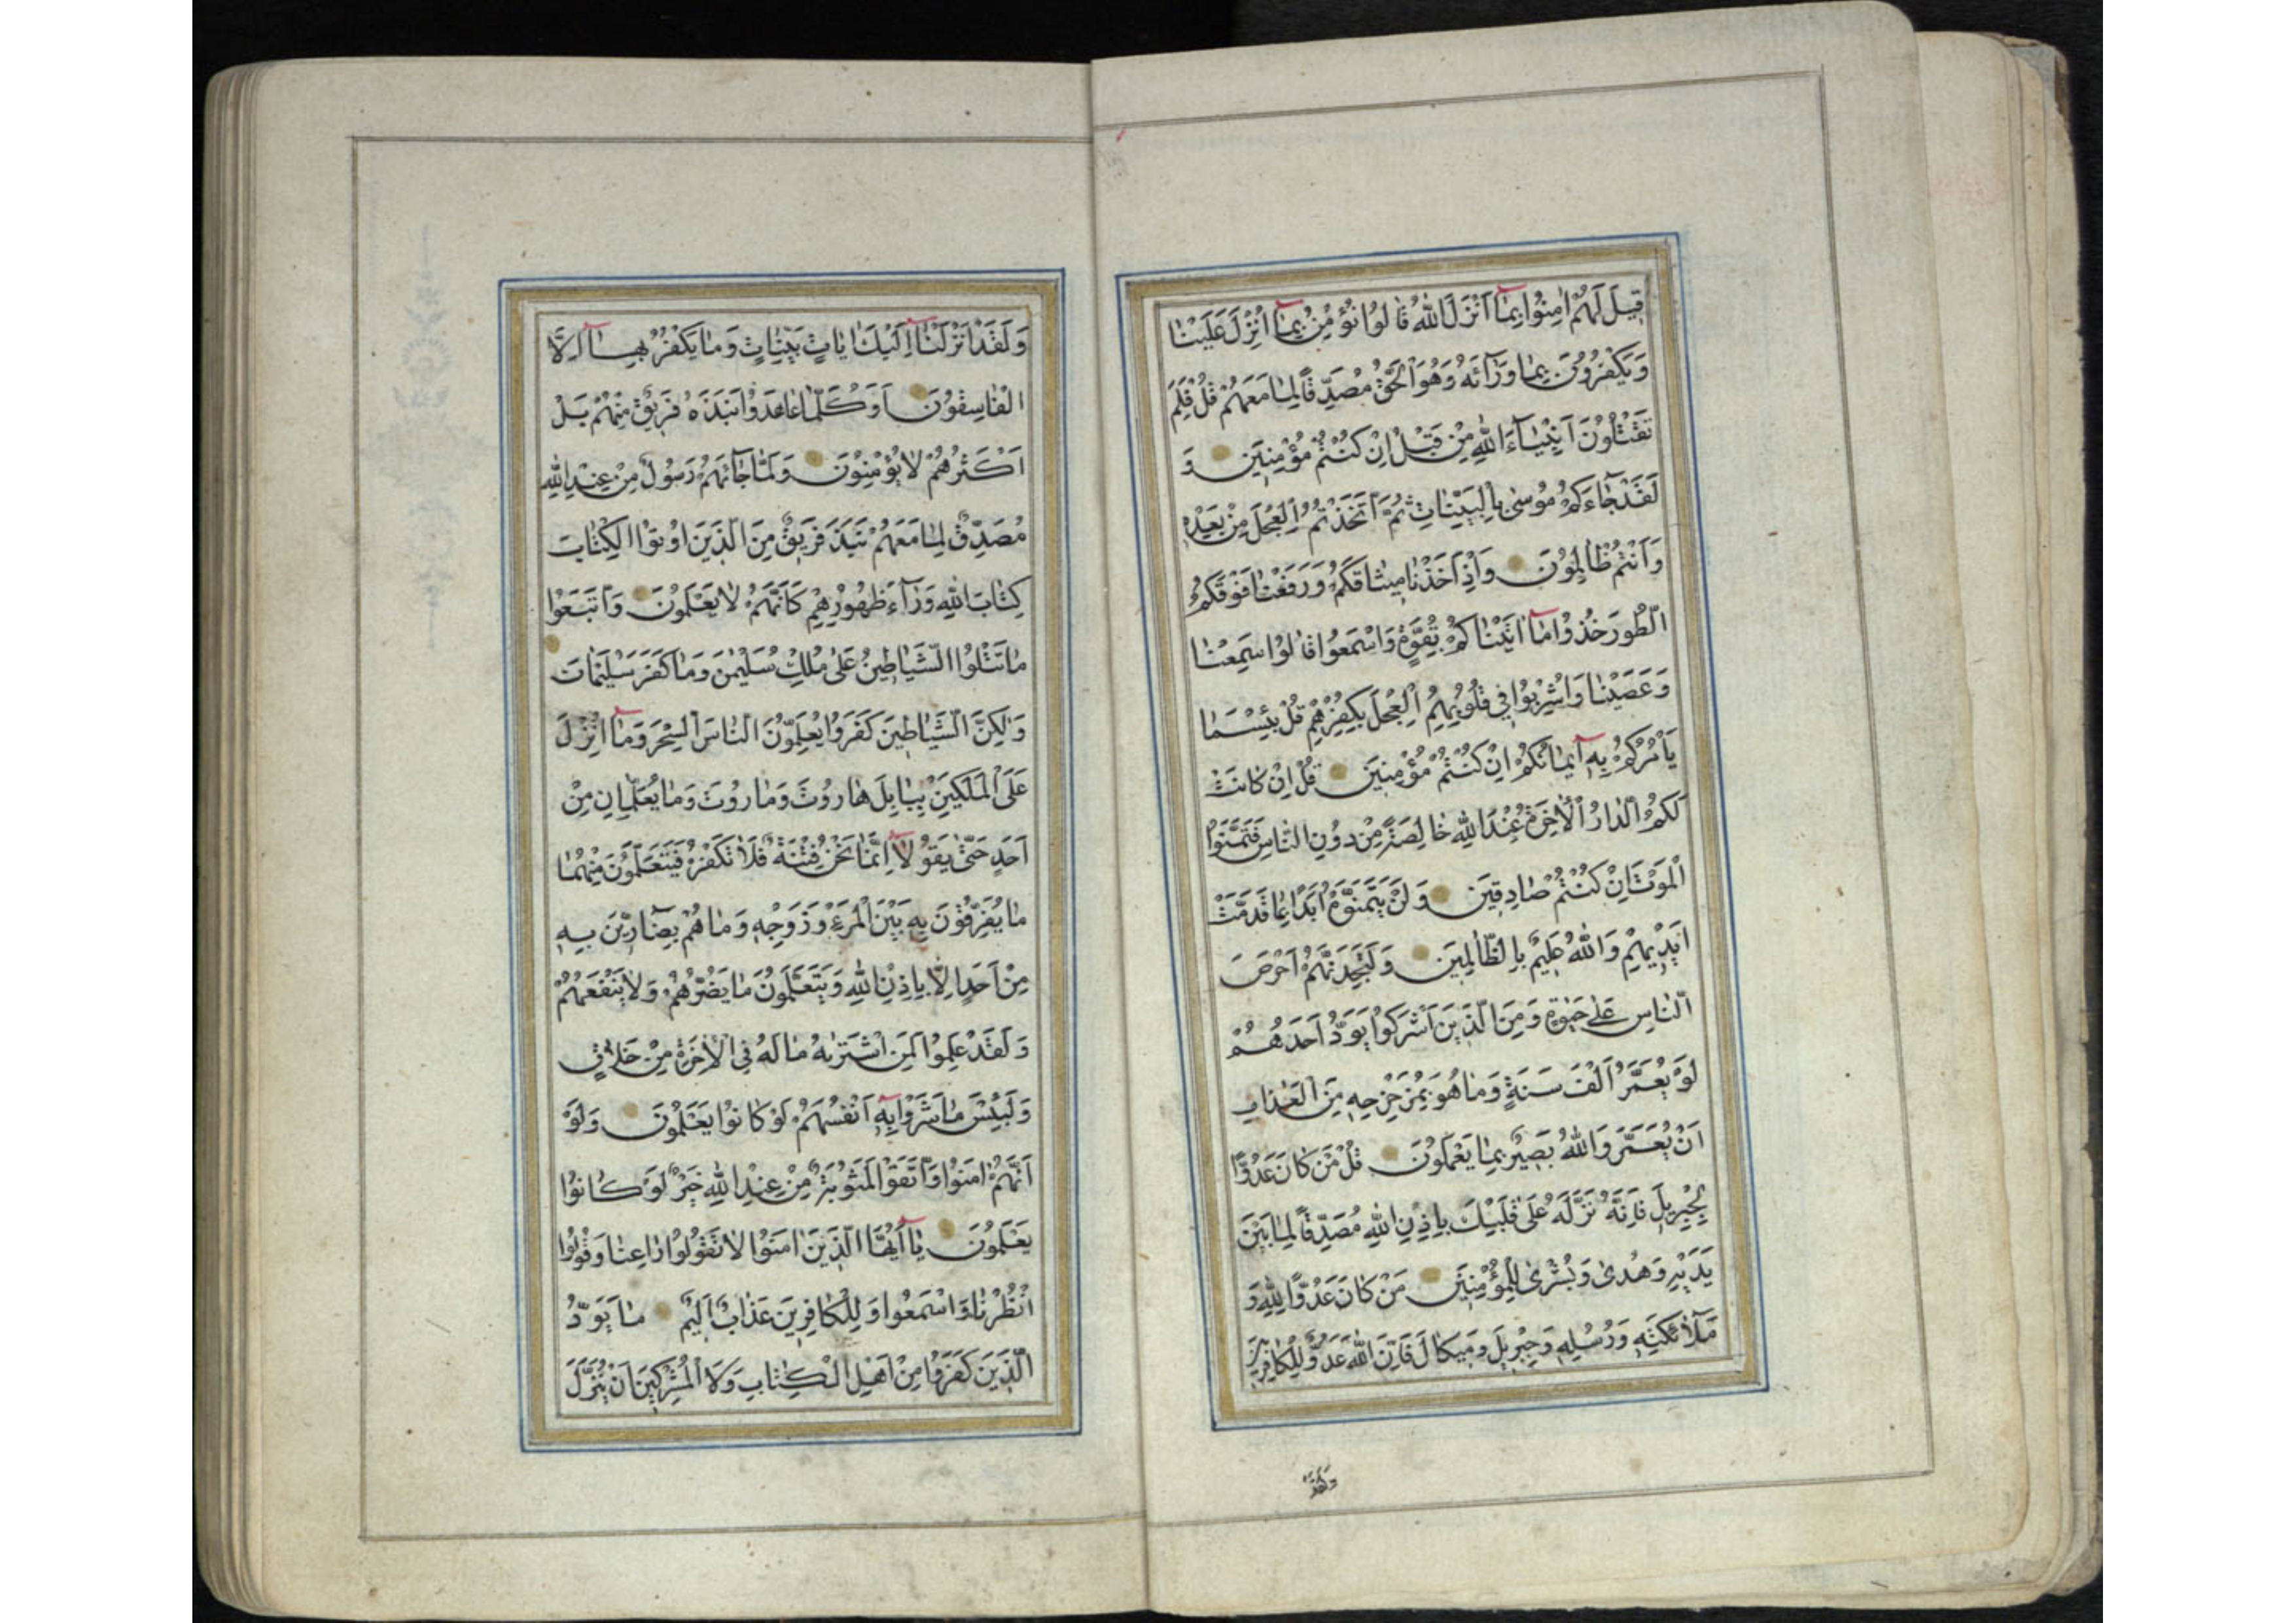 قِيلَ لَهُمْ اٰمِنُوا بِمَٓا اَنْزَلَ اللّٰهُ قَالُوا نُؤْمِنُ بِمَٓا اُنْزِلَ عَلَيْنَا
وَيَكْفُرُونَ بِمَا وَرَٓائَهُ وَهُوَ الْحَقُّ مُصَدِّقًا لِمَا مَعَهُمْ قُلْ فَلِمَ
تَقْتُلُونَ اَنْبِيَٓاءَ اللّٰهِ مِنْ قَبْلُ اِنْ كُنْتُمْ مُؤْمِنِينَ وَ
لَقَدْ جَٓاءَكُمْ مُوسٰى بِالْبَيِّنَاتِ ثُمَّ اتَّخَذْتُمُ الْعِجْلَ مِنْ بَعْدِهِ
وَاَنْتُمْ ظَالِمُونَ وَاِذْ اَخَذْنَا مِيثَاقَكُمْ وَرَفَعْنَا فَوْقَكُمُ
الطُّورَ خُذُوا مَٓا اٰتَيْنَاكُمْ بِقُوَّةٍ وَاسْمَعُوا قَالُوا سَمِعْنَا
وَعَصَيْنَا وَاُشْرِبُوا فِي قُلُوبِهِمُ الْعِجْلَ بِكُفْرِهِمْ قُلْ بِئْسَمَا
يَأْمُرُكُمْ بِهِٓ اِيمَانُكُمْ اِنْ كُنْتُمْ مُؤْمِنِينَ قُلْ اِنْ كَانَتْ
لَكُمُ الدَّارُ الْاٰخِرَةُ عِنْدَ اللّٰهِ خَالِصَةً مِنْ دُونِ النَّاسِ فَتَمَنَّوُا
الْمَوْتَ اِنْ كُنْتُمْ صَادِقِينَ وَلَنْ يَتَمَنَّوْهُ اَبَدًا بِمَا قَدَّمَتْ
اَيْدِيهِمْ وَاللّٰهُ عَلِيمٌ بِالظَّالِمِينَ وَلَتَجِدَنَّهُمْ اَحْرَصَ
النَّاسِ عَلٰى حَيٰوةٍ وَمِنَ الَّذِينَ اَشْرَكُوا يَوَدُّ اَحَدُهُمْ
لَوْ يُعَمَّرُ اَلْفَ سَنَةٍ وَمَا هُوَ بِمُزَحْزِحِهِ مِنَ الْعَذَابِ
اَنْ يُعَمَّرَ وَاللّٰهُ بَصِيرٌ بِمَا يَعْمَلُونَ قُلْ مَنْ كَانَ عَدُوًّا
لِجِبْرِيلَ فَاِنَّهُ نَزَّلَهُ عَلٰى قَلْبِكَ بِاِذْنِ اللّٰهِ مُصَدِّقًا لِمَا بَيْنَ
يَدَيْهِ وَهُدًى وَبُشْرٰى لِلْمُؤْمِنِينَ مَنْ كَانَ عَدُوًّا لِلّٰهِ وَ
مَلٰٓائِكَتِهِ وَرُسُلِهِ وَجِبْرِيلَ وَمِيكَالَ فَاِنَّ اللّٰهَ عَدُوٌّ لِلْكَافِرِينَ
وَلَقَدْ
وَلَقَدْ اَنْزَلْنَٓا اِلَيْكَ اٰيَاتٍ بَيِّنَاتٍ وَمَا يَكْفُرُ بِهَٓا اِلَّا
الْفَاسِقُونَ اَوَكُلَّمَا عَاهَدُوا نَبَذَهُ فَرِيقٌ مِنْهُمْ بَلْ
اَكْثَرُهُمْ لَا يُؤْمِنُونَ وَلَمَّا جَٓائَهُمْ رَسُولٌ مِنْ عِنْدِ اللّٰهِ
مُصَدِّقٌ لِمَا مَعَهُمْ نَبَذَ فَرِيقٌ مِنَ الَّذِينَ اُوتُوا الْكِتَابَ
كِتَابَ اللّٰهِ وَرَٓاءَ ظُهُورِهِمْ كَاَنَّهُمْ لَا يَعْلَمُونَ وَاتَّبَعُوا
مَا تَتْلُوا الشَّيَاطِينُ عَلٰى مُلْكِ سُلَيْمٰنَ وَمَا كَفَرَ سُلَيْمَانُ
وَلٰكِنَّ الشَّيَاطِينَ كَفَرُوا يُعَلِّمُونَ النَّاسَ السِّحْرَ وَمَٓا اُنْزِلَ
عَلَى الْمَلَكَيْنِ بِبَابِلَ هَارُوتَ وَمَارُوتَ وَمَا يُعَلِّمَانِ مِنْ
اَحَدٍ حَتّٰى يَقُولَٓا اِنَّمَا نَحْنُ فِتْنَةٌ فَلَا تَكْفُرْ فَيَتَعَلَّمُونَ مِنْهُمَا
مَا يُفَرِّقُونَ بِهِ بَيْنَ الْمَرْءِ وَزَوْجِهِ وَمَا هُمْ بِضَٓارِّينَ بِهِ
مِنْ اَحَدٍ اِلَّا بِاِذْنِ اللّٰهِ وَيَتَعَلَّمُونَ مَا يَضُرُّهُمْ وَلَا يَنْفَعُهُمْ
وَلَقَدْ عَلِمُوا لَمَنِ اشْتَرٰيهُ مَا لَهُ فِي الْاٰخِرَةِ مِنْ خَلَاقٍ
وَلَبِئْسَ مَا شَرَوْا بِهِٓ اَنْفُسَهُمْ لَوْ كَانُوا يَعْلَمُونَ وَلَوْ
اَنَّهُمْ اٰمَنُوا وَاتَّقَوْا لَمَثُوبَةٌ مِنْ عِنْدِ اللّٰهِ خَيْرٌ لَوْ كَانُوا
يَعْلَمُونَ يَٓا اَيُّهَا الَّذِينَ اٰمَنُوا لَا تَقُولُوا رَاعِنَا وَقُولُوا
انْظُرْنَا وَاسْمَعُوا وَلِلْكَافِرِينَ عَذَابٌ اَلِيمٌ مَا يَوَدُّ
الَّذِينَ كَفَرُوا مِنْ اَهْلِ الْكِتَابِ وَلَا الْمُشْرِكِينَ اَنْ يُنَزَّلَ